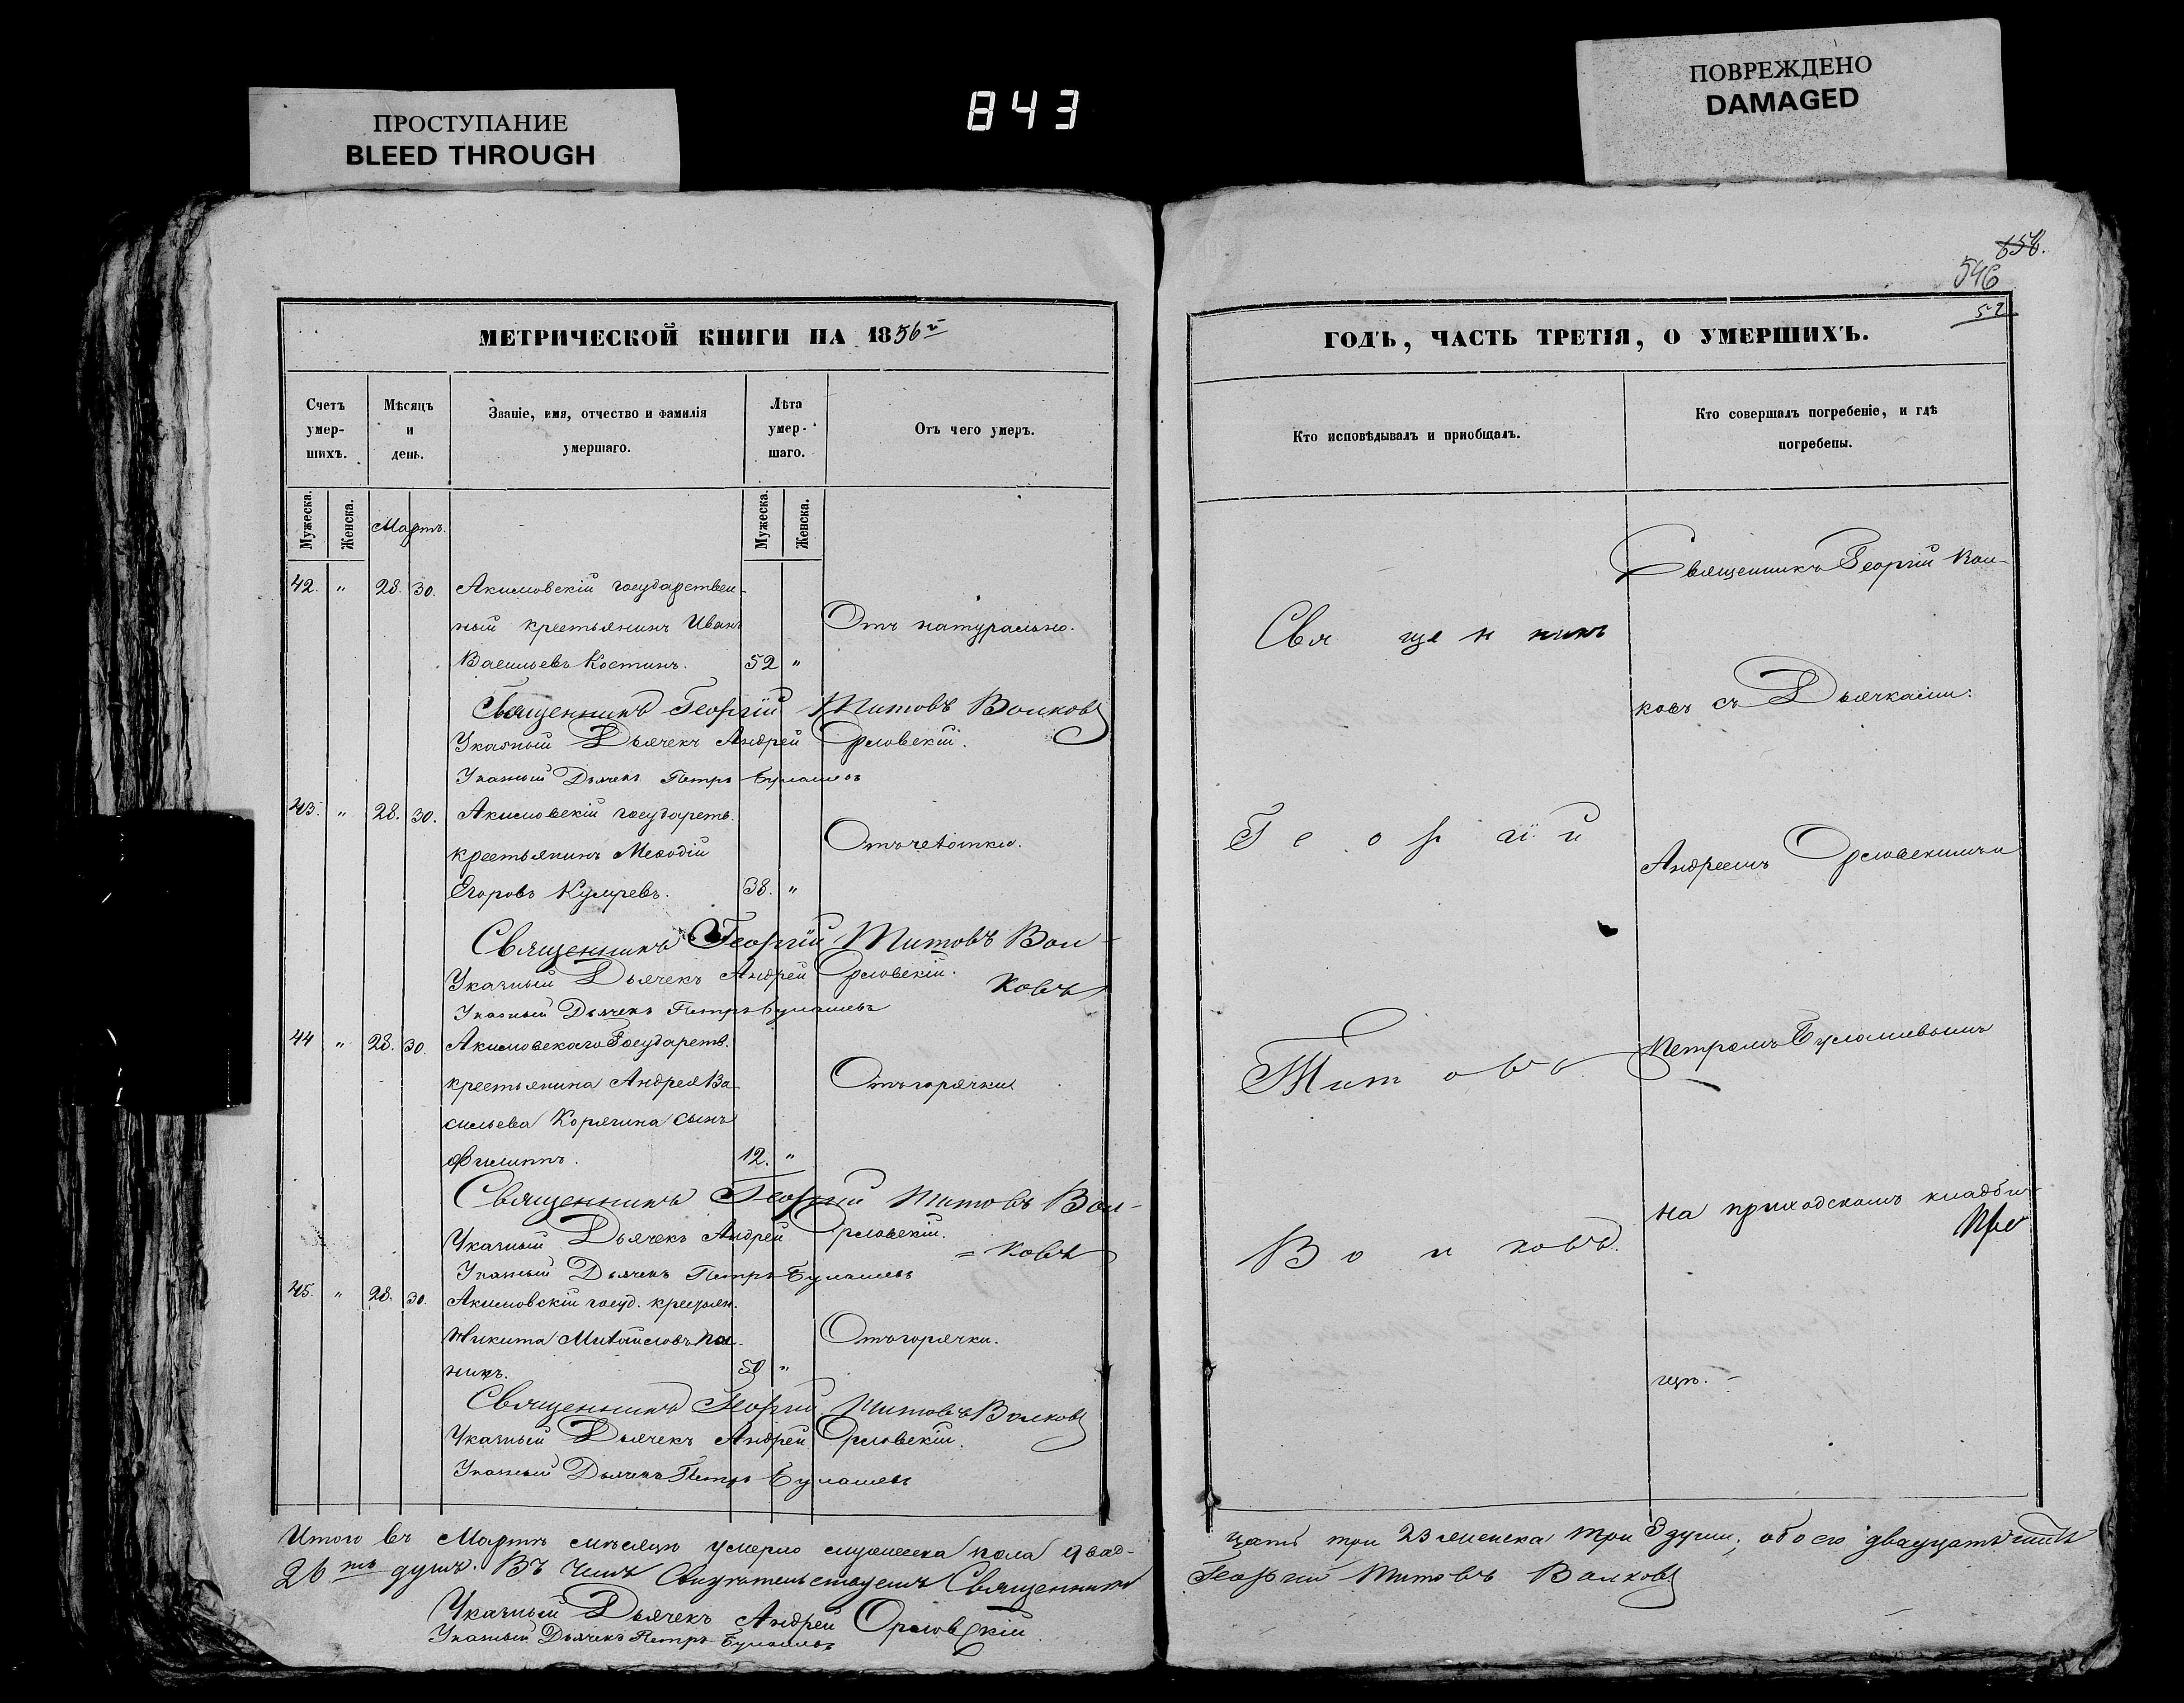 ПРОСТУПАНИЕ
BLEED THROUGH
843
ПОВРЕЖДЕНО
DAMAGED
МЕТРИЧЕСКОЙ КНИГИ НА 1856й
Счетъ умер-шихъ.
Мѣсяцъ и день.
Званіе, имя, отчество и фамилія умершаго.
Лѣта умер-шаго.
Отъ чего умеръ.
Мужеска. Женска. Мартъ. Мужеска. Женска.
42. " 28. 30. Акимовскій государствен-
ный крестьянинъ Иванъ Отъ натурально.
Васильевъ Костинъ. 52 "
Священникъ Георгій Титовъ Волковъ
Указный Дьячекъ Андрей Орловскій.
Указный Дьячекъ Петръ Булашевъ
43. " 28. 30. Акимовскій государств.
крестьянинъ Меѳодій Отъ чахотки.
Егоровъ 38. "
Священникъ Георгій Титовъ Вол-
Указный Дьячекъ Андрей Орловскій. ковъ
Указный Дьячекъ Петръ Булашевъ
44 " 28. 30. Акимовскаго Государств.
крестьянина Андрея Ва- Отъ горячки
сильева Корягина сынъ
Филиппъ. 12. "
Священникъ Георгій Титовъ Вол-
Указный Дьячекъ Андрей Орловскій.
= ковъ
Указный Дьячекъ Петръ Булашевъ
45. " 28. 30. Акимовскій госуд. крестьян.
Никита Михайловъ Отъ горячки.
никъ. 50 "
Священникъ Георгій Титовъ Волковъ
Указный Дьячекъ Андрей Орловскій.
Указный Дьячекъ Петръ Булашевъ
Итого въ Мартѣ мѣсяцѣ умерло мужеска пола двад-
26ть душъ. Въ чемъ свидѣтельствуемъ Священникъ
Указный Дьячекъ Андрей Орловскій
Указный Дьячекъ Петръ Булашевъ
546
52
ГОДЪ, ЧАСТЬ ТРЕТІЯ, О УМЕРШИХЪ.
Кто исповѣдывалъ и приобщалъ.
Кто совершалъ погребеніе, и гдѣ погребены.
Священникъ
Георгій
Титовъ
Волковъ.
Священникъ Георгій Вол-
ковъ съ Дьячками:
Андреемъ Орловскимъ и
Петромъ Булашевымъ
на приходскомъ кладби-
щѣ. -
цать три 23 женска три 3 души; обоего двадцать шесть
Георгій Титовъ Волковъ